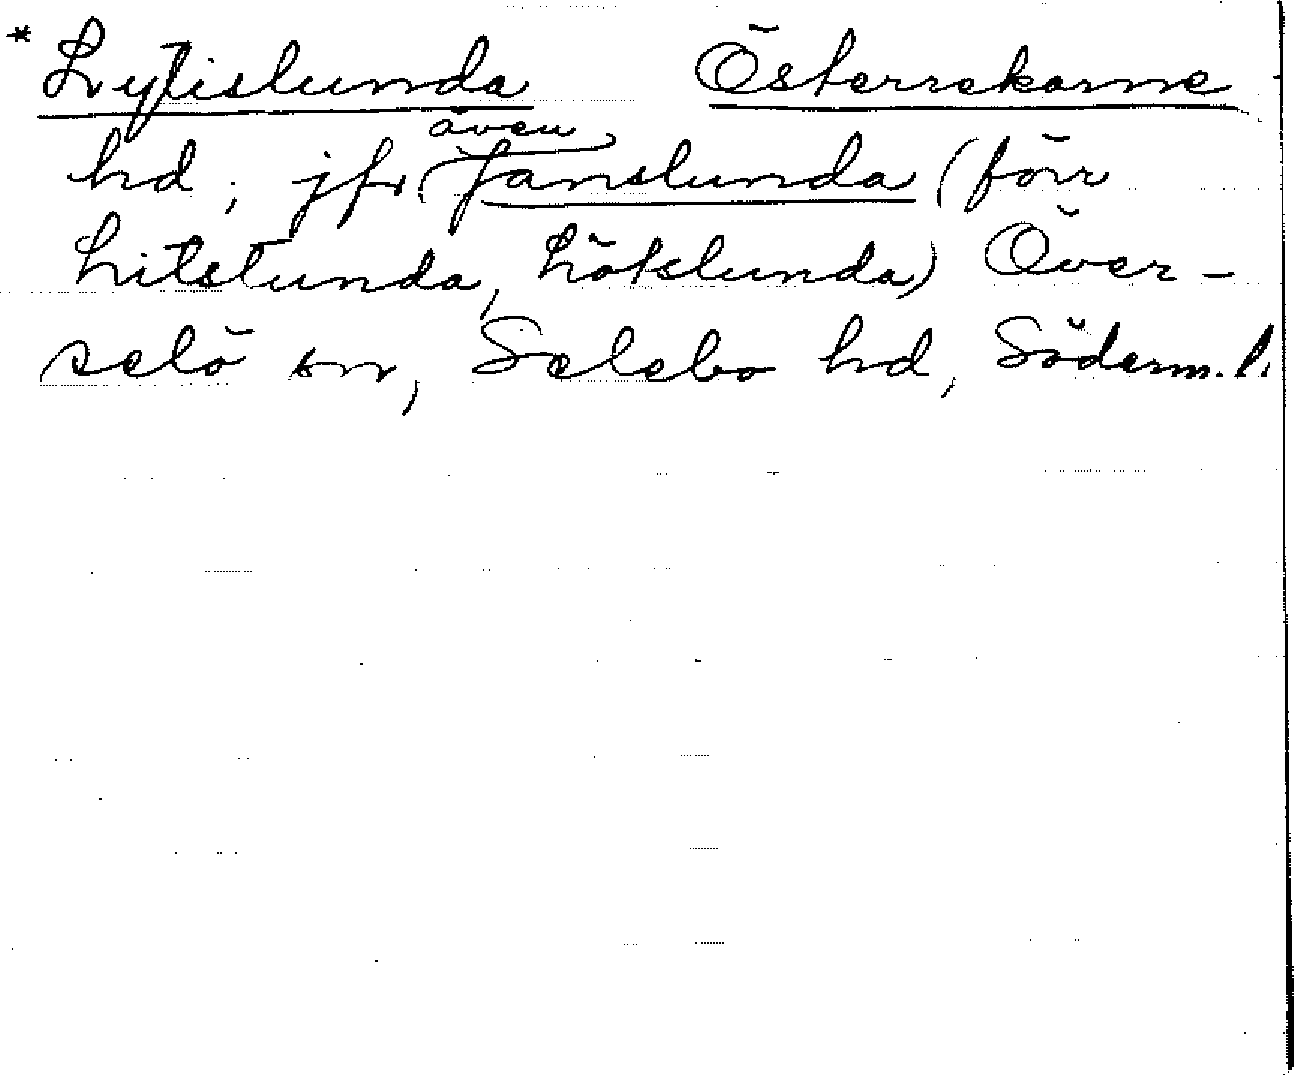 * Lytislunda Österrekarne
även
hd; jfr Janslunda (förr
Litslunda, Hökslunda) Över-
selö sn, Selebo hd, Söderm. l.